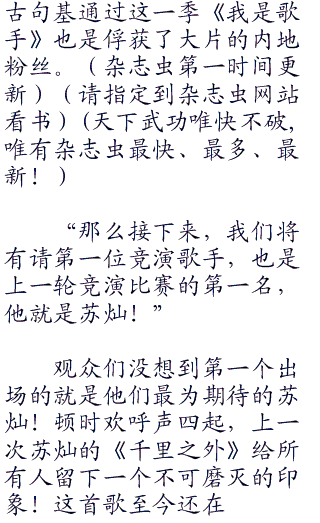 古句基通过这一季《我是歌
手》也是俘获了大片的内地
粉丝。（杂志虫第一时间更
新）（请指定到杂志虫网站
看书）(天下武功唯快不破,
唯有杂志虫最快、最多、最
新！）
“那么接下来，我们将
有请第一位竞演歌手，也是
上一轮竞演比赛的第一名，
他就是苏灿！”
观众们没想到第一个出
场的就是他们最为期待的苏
灿！顿时欢呼声四起，上一
次苏灿的《千里之外》给所
有人留下一个不可磨灭的印
象！这首歌至今还在